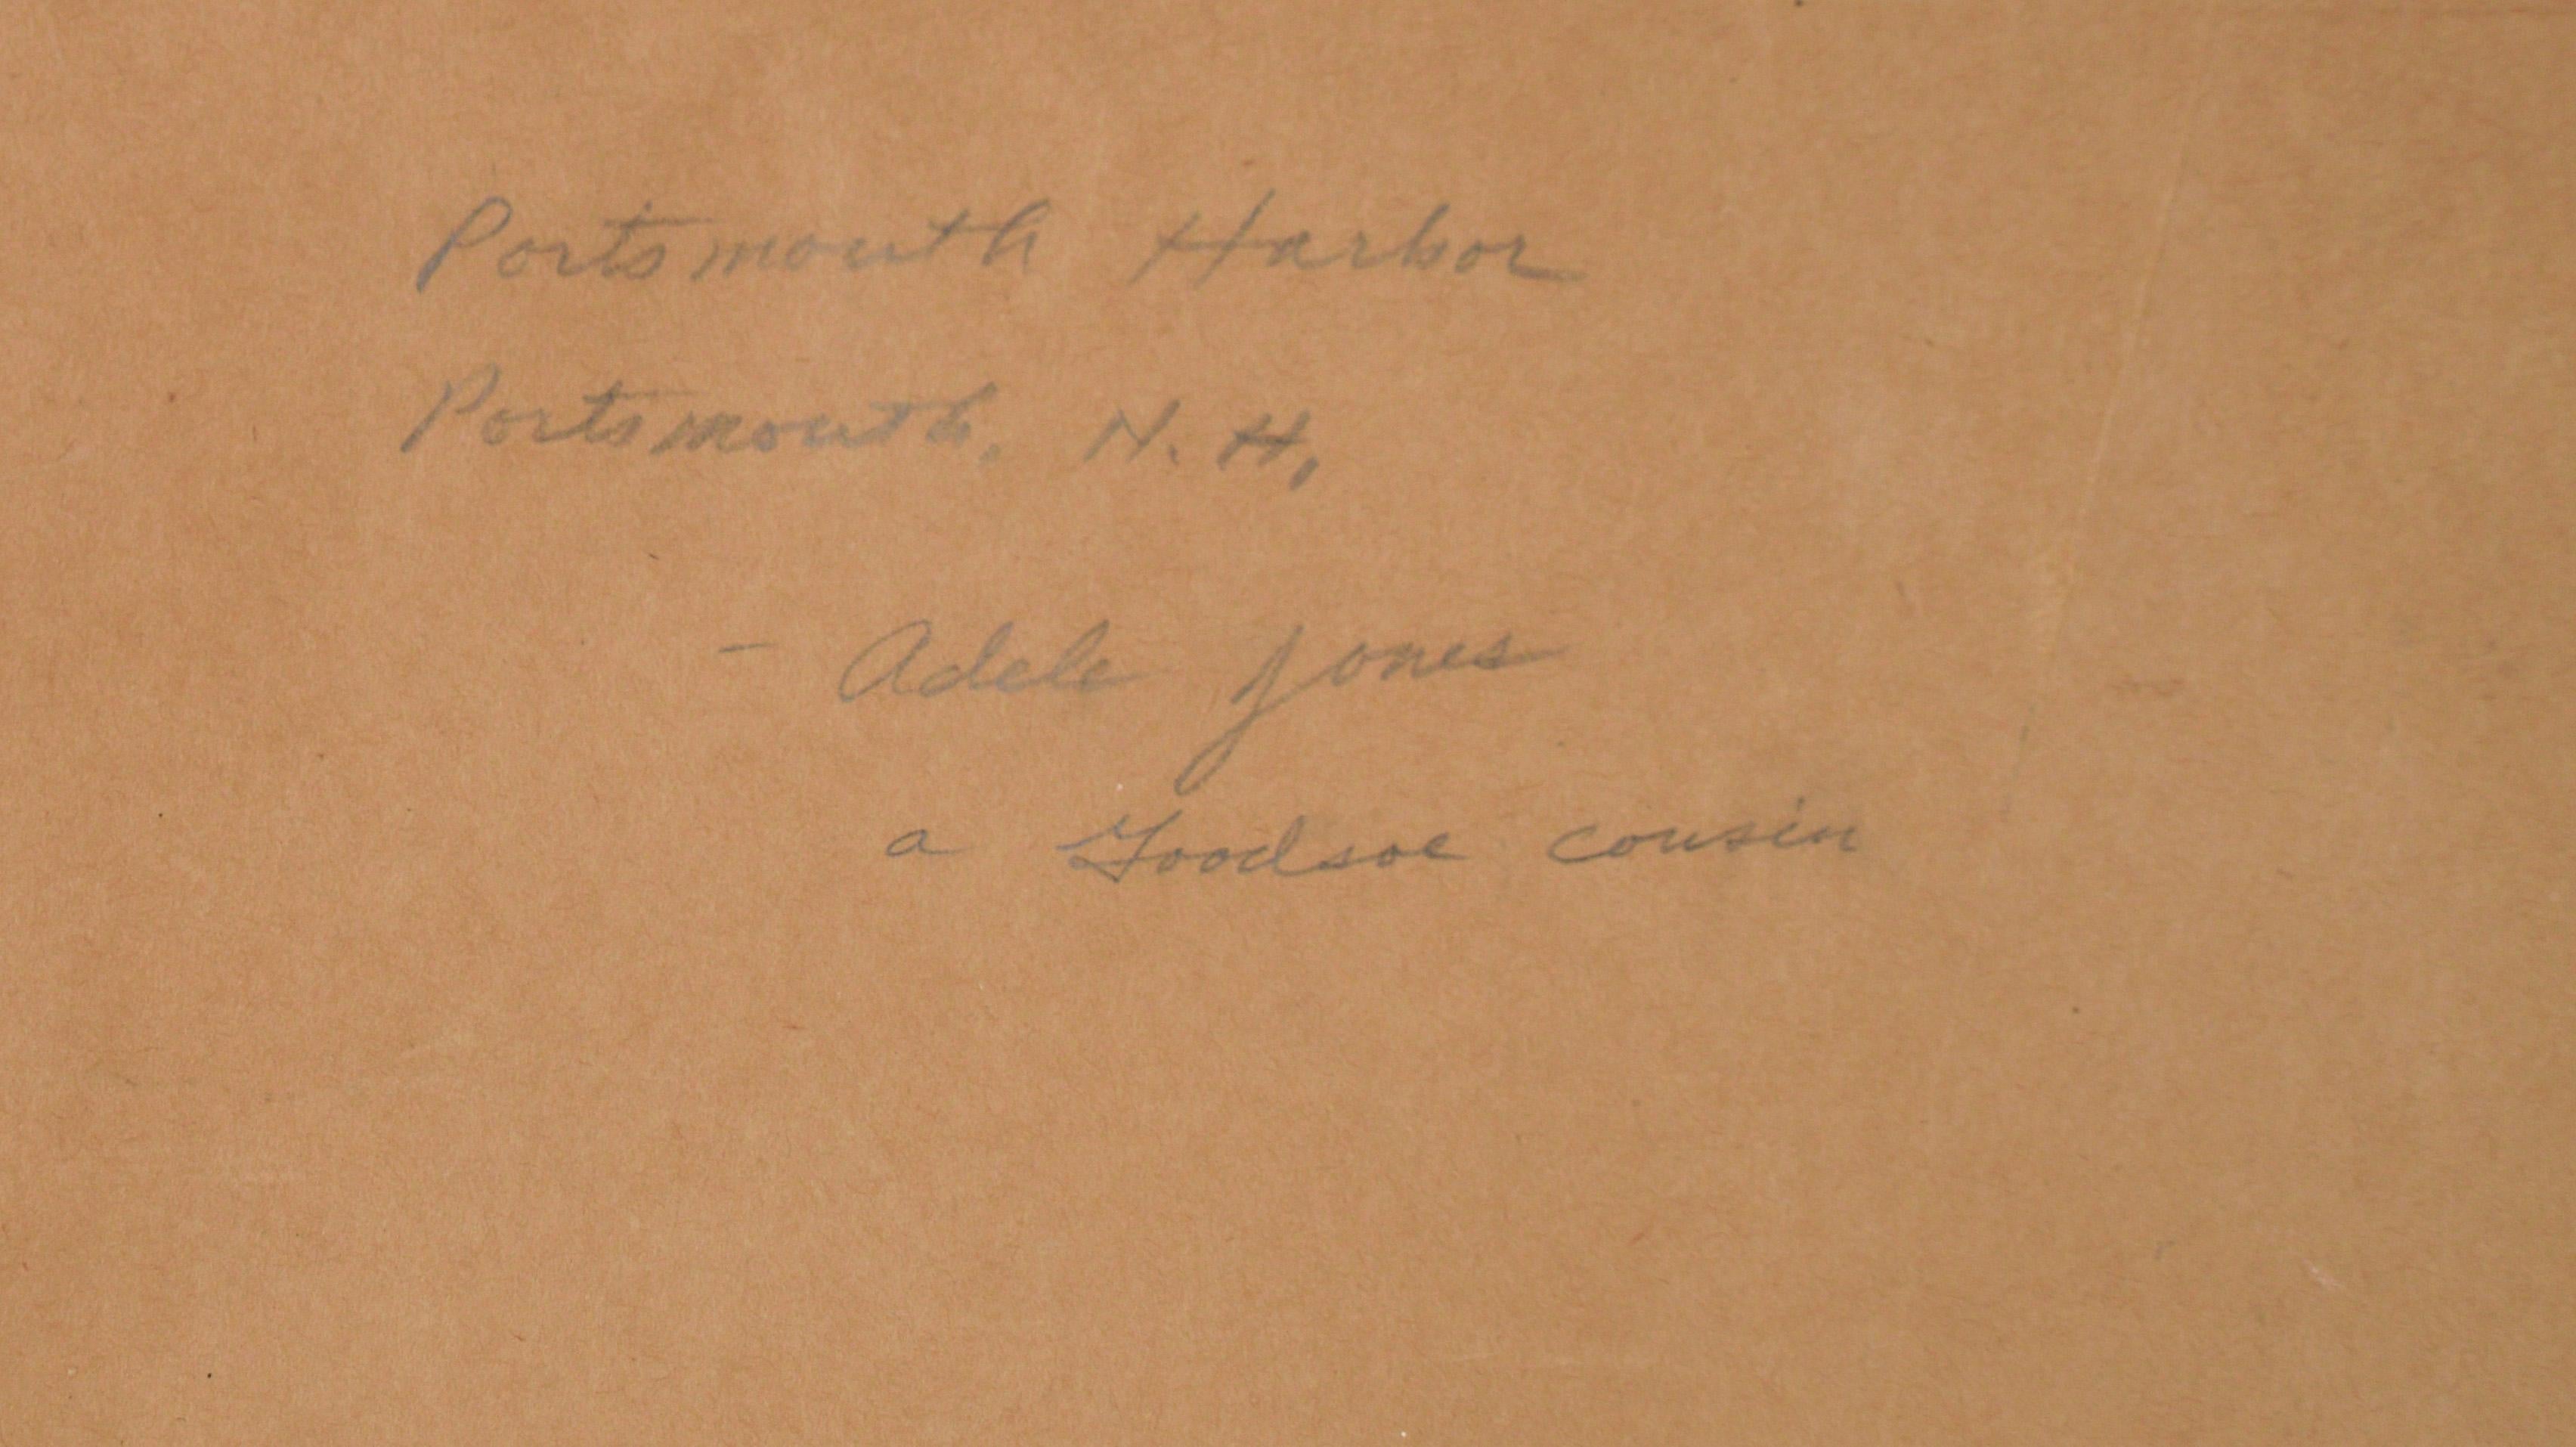 Portsmouth Harbor
Portsmouth. N. H.
- Adele Jones
a Goodsoe cousin